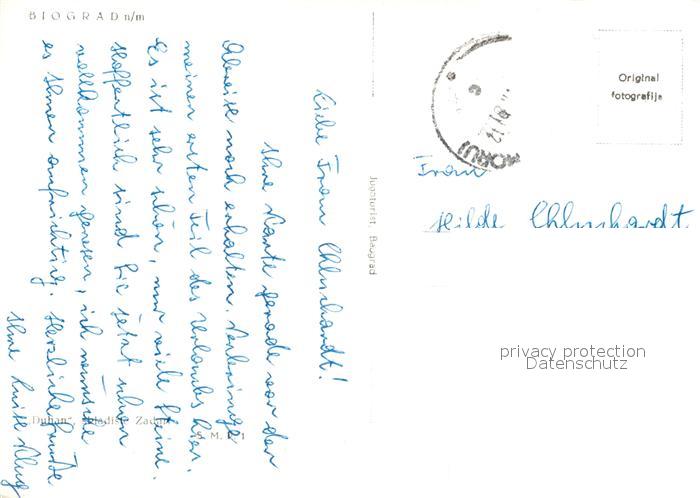 BIOGRAD n/m
Liebe Frau Ehlershardt!
Ihre Karte gerade vor der
Abreise noch erhalten. Verbringe
meinen ersten Teil des Urlaubs hier.
Es ist sehr schön, nur viele Steine.
Hoffentlich sind Sie jetzt schon
vollkommen genesen, ich wünsche
es Ihnen aufrichtig. Herzliche Grüße
Ihre Luise Klug
Jugoturist, Beograd
MORU
Original
fotografija
Frau
Hilde
privacy protection
Datenschutz